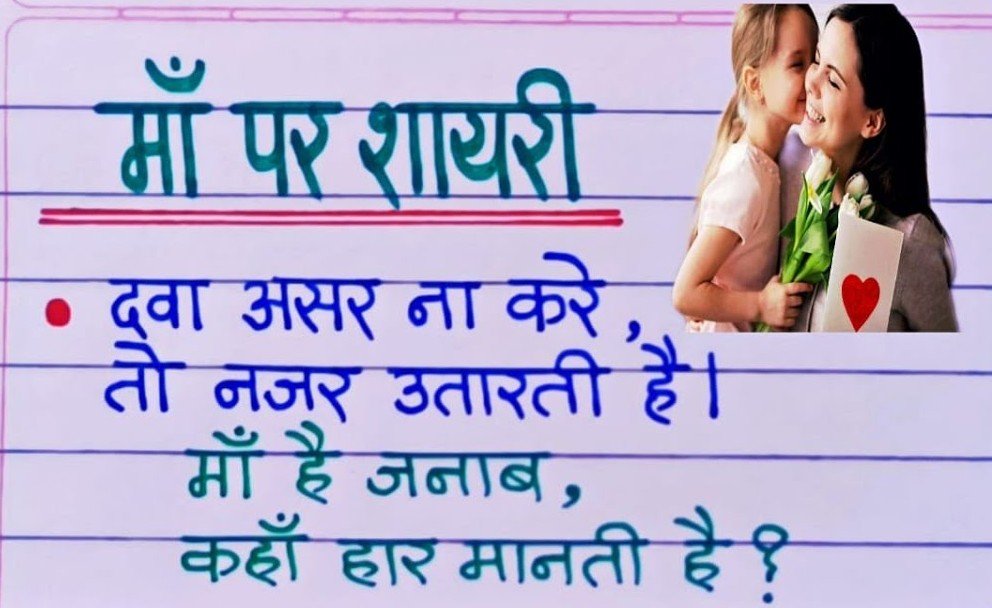 माँ पर शायरी
• दवा असर ना करे,
तो नजर उतारती है।
माँ है जनाब,
कहाँ हार मानती है?